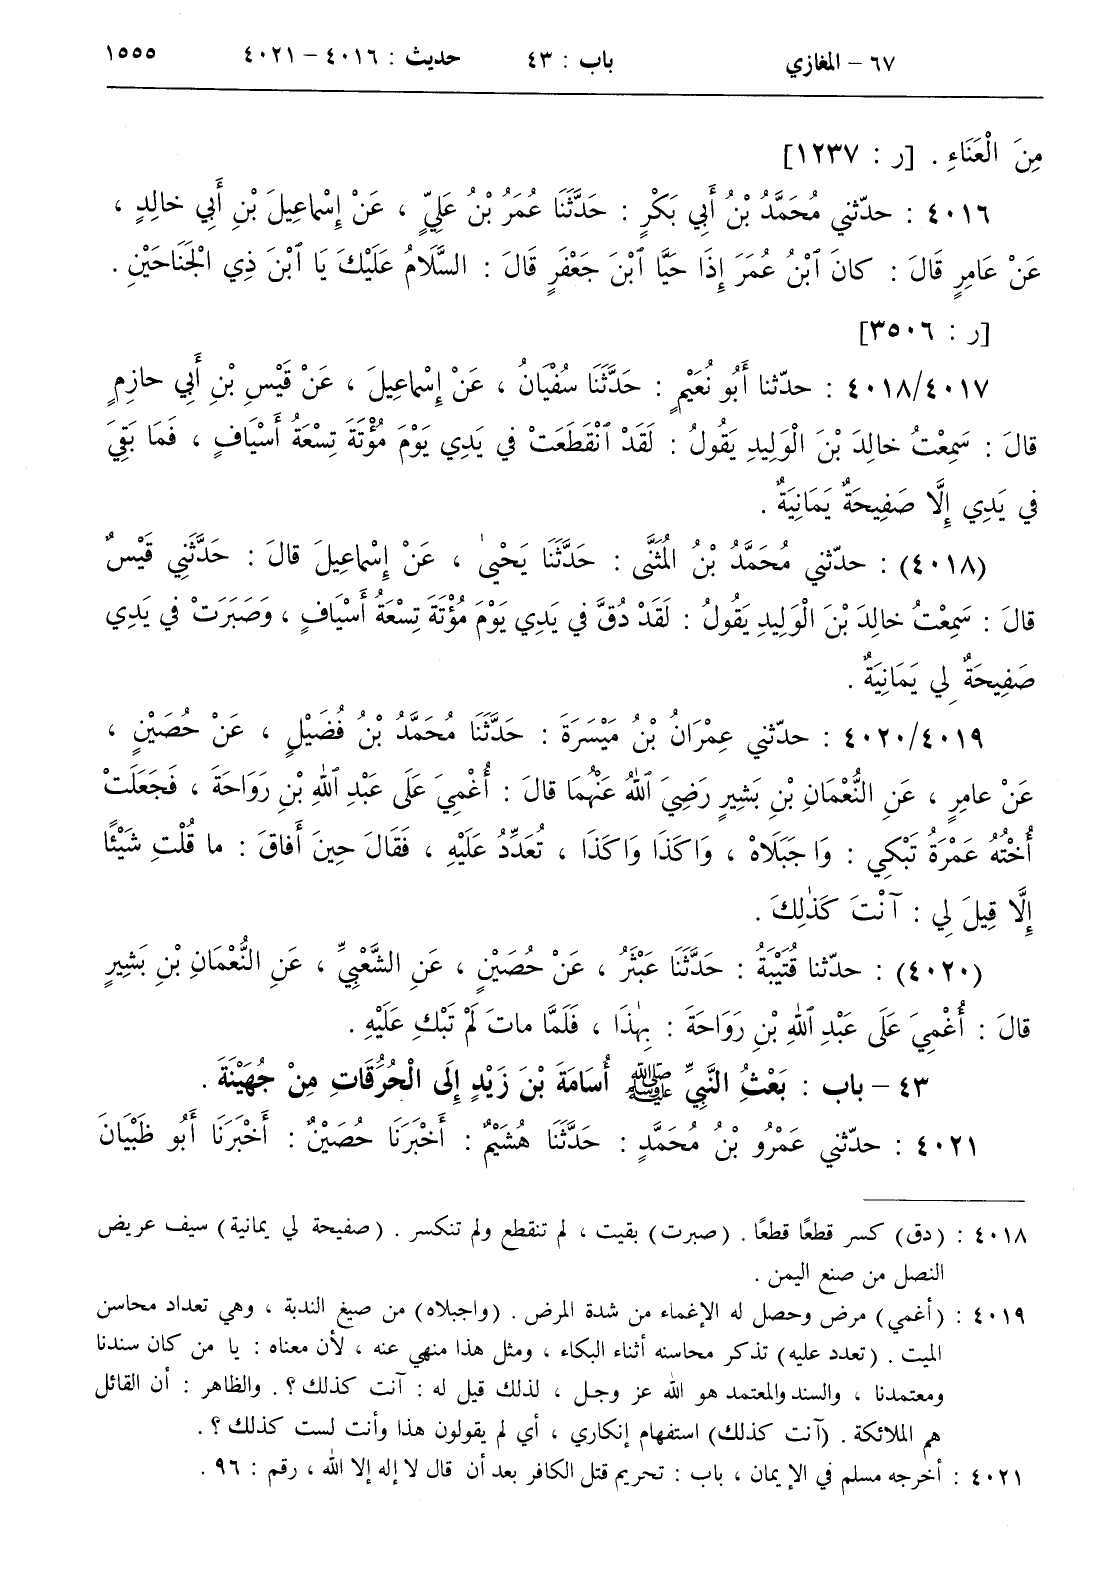 ٦٧ – المغازي باب : ٤٣ حديث : ٤٠١٦ – ٤٠٢١ ١٥٥٥
مِنَ الْعَنَاءِ . [ر : ١٢٣٧]
٤٠١٦ : حدّثني مُحَمَّدُ بْنُ أَبِي بَكْرٍ : حَدَّثَنَا عُمَرُ بْنُ عَلِيٍّ ، عَنْ إِسْماعِيلَ بْنِ أَبِي خالِدٍ ،
عَنْ عَامِرٍ قَالَ : كانَ ٱبْنُ عُمَرَ إِذَا حَيَّا ٱبْنَ جَعْفَرٍ قَالَ : السَّلَامُ عَلَيْكَ يَا ٱبْنَ ذِي الْجَنَاحَيْنِ .
[ر : ٣٥٠٦]
٤٠١٨/٤٠١٧ : حدّثنا أَبُو نُعَيْمٍ : حَدَّثَنَا سُفْيَانُ ، عَنْ إِسْماعِيلَ ، عَنْ قَيْسِ بْنِ أَبِي حازِمٍ
قالَ : سَمِعْتُ خالِدَ بْنَ الْوَلِيدِ يَقُولُ : لَقَدْ ٱنْقَطَعَتْ في يَدِي يَوْمَ مُؤْتَةَ تِسْعَةُ أَسْيَافٍ ، فَمَا بَقِيَ
في يَدِي إِلَّا صَفِيحَةٌ يَمَانِيَةٌ .
(٤٠١٨) : حدّثني مُحَمَّدُ بْنُ المُثَنَّى : حَدَّثَنَا يَحْيىٰ ، عَنْ إِسْماعِيلَ قالَ : حَدَّثَنِي قَيْسٌ
قالَ : سَمِعْتُ خالِدَ بْنَ الْوَلِيدِ يَقُولُ : لَقَدْ دُقَّ في يَدِي يَوْمَ مُؤْتَةَ تِسْعَةُ أَسْيَافٍ ، وَصَبَرَتْ في يَدِي
صَفِيحَةٌ لِي يَمَانِيَةٌ .
٤٠٢٠/٤٠١٩ : حدّثني عِمْرَانُ بْنُ مَيْسَرَةَ : حَدَّثَنَا مُحَمَّدُ بْنُ فُضَيْلٍ ، عَنْ حُصَيْنٍ ،
عَنْ عامِرٍ ، عَنِ النُّعْمَانِ بْنِ بَشِيرٍ رَضِيَ ٱللهُ عَنْهُمَا قالَ : أُغْمِيَ عَلَى عَبْدِ ٱللهِ بْنِ رَوَاحَةَ ، فَجَعَلَتْ
أُخْتُهُ عَمْرَةُ تَبْكِي : وَا جَبَلَاهْ ، وَاكَذَا وَاكَذَا ، تُعَدِّدُ عَلَيْهِ ، فَقَالَ حِينَ أَفاقَ : ما قُلْتِ شَيْئًا
إِلَّا قِيلَ لِي : آنْتَ كَذٰلِكَ .
(٤٠٢٠) : حدّثنا قُتَيْبَةُ : حَدَّثَنَا عَبْثَرُ ، عَنْ حُصَيْنٍ ، عَنِ الشَّعْبِيِّ ، عَنِ النُّعْمَانِ بْنِ بَشِيرٍ
قالَ : أُغْمِيَ عَلَى عَبْدِ ٱللهِ بْنِ رَوَاحَةَ : بِهٰذَا ، فَلَمَّا ماتَ لَمْ تَبْكِ عَلَيْهِ .
٤٣ – باب : بَعْثُ النَّبِيِّ ﷺ أُسَامَةَ بْنَ زَيْدٍ إِلَى الْحُرُقَاتِ مِنْ جُهَيْنَةَ .
٤٠٢١ : حدّثني عَمْرُو بْنُ مُحَمَّدٍ : حَدَّثَنَا هُشَيْمٌ : أَخْبَرَنَا حُصَيْنٌ : أَخْبَرَنَا أَبُو ظَبْيَانَ
٤٠١٨ : (دق) كسر قطعًا قطعًا . (صبرت) بقيت ، لم تنقطع ولم تنكسر . (صفيحة لي يمانية) سيف عريض
النصل من صنع اليمن .
٤٠١٩ : (أغمي) مرض وحصل له الإغماء من شدة المرض . (واجبلاه) من صيغ الندبة ، وهي تعداد محاسن
الميت . (تعدد عليه) تذكر محاسنه أثناء البكاء ، ومثل هذا منهي عنه ، لأن معناه : يا من كان سندنا
ومعتمدنا ، والسند والمعتمد هو الله عز وجل ، لذلك قيل له : آنت كذلك ؟ . والظاهر : أن القائل
هم الملائكة . (آنت كذلك) استفهام إنكاري ، أي لم يقولون هذا وأنت لست كذلك ؟ .
٤٠٢١ : أخرجه مسلم في الإيمان ، باب : تحريم قتل الكافر بعد أن قال لا إله إلا الله ، رقم : ٩٦ .